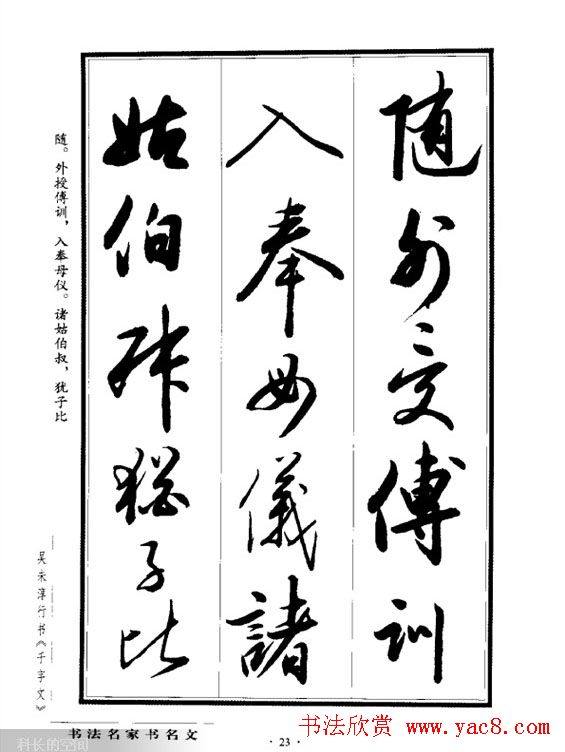 随外受傅訓
入奉母儀諸
姑伯叔猶子比
随。外授傅训，入奉母仪。诸姑伯叔，犹子比
吴未淳行书《千字文》
书法名家书名文
· 23 ·
科长的空间
书法欣赏 www.yac8.com